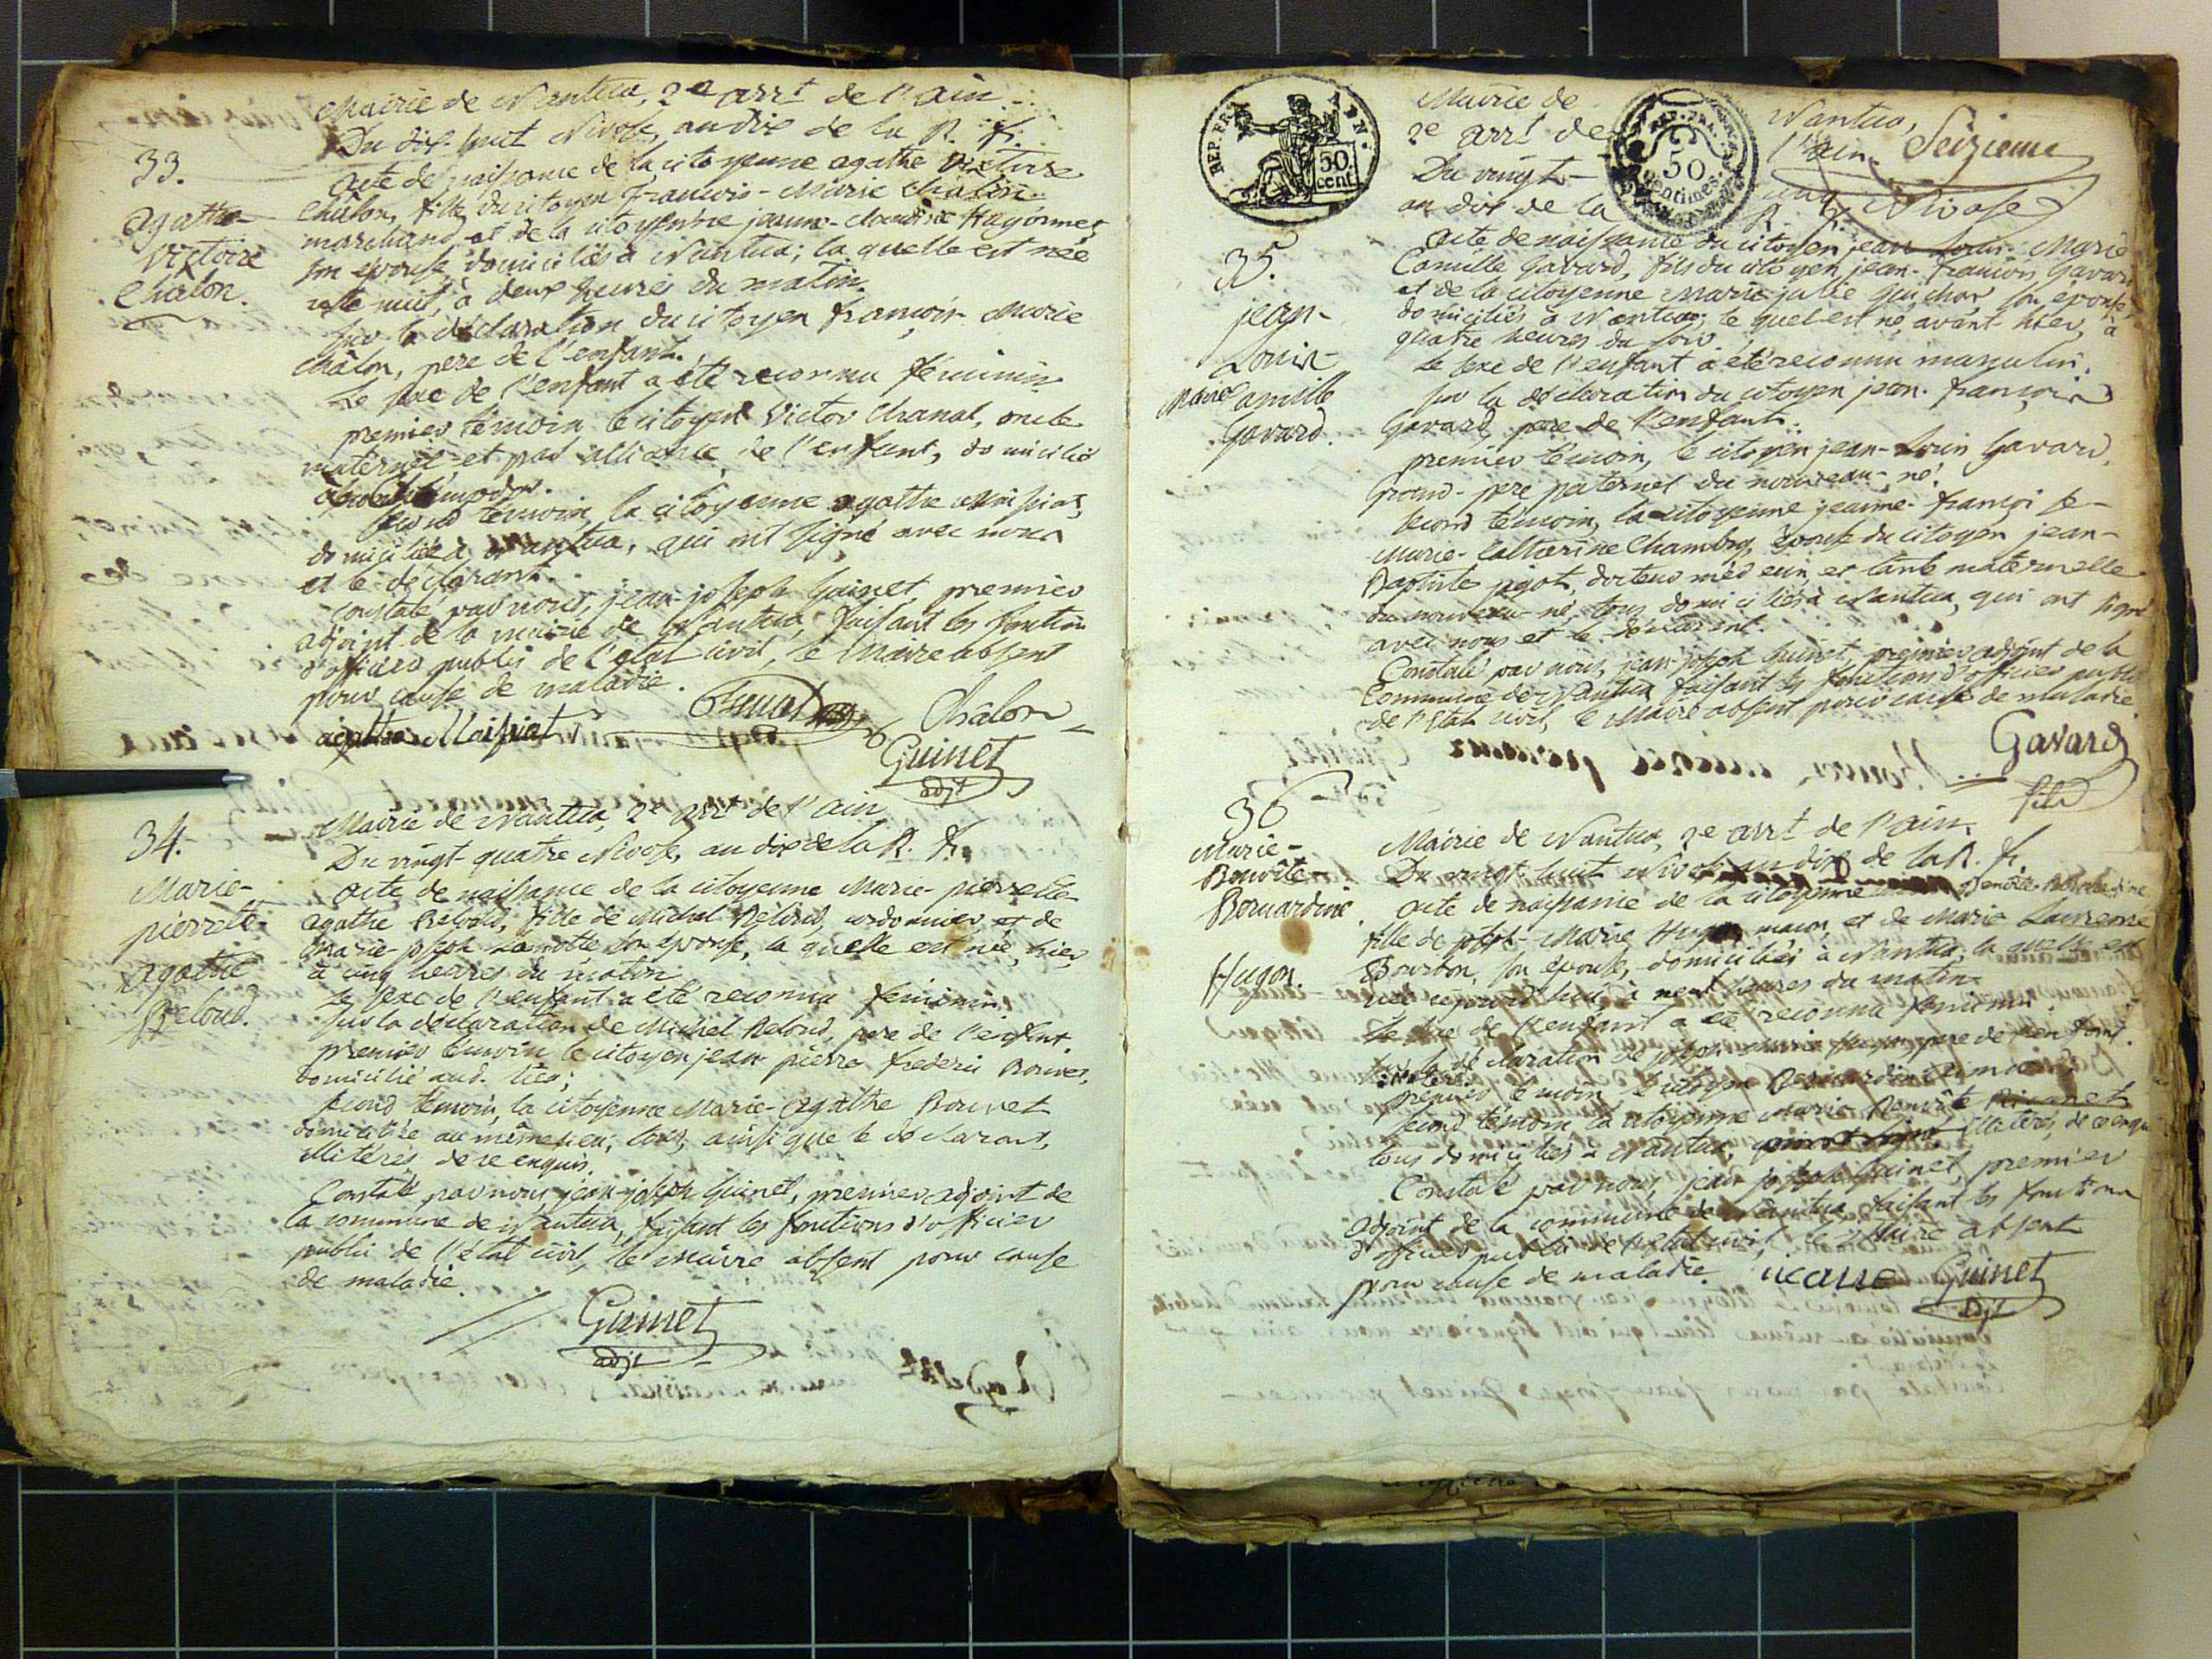 Mairie de Nantua, 2e arrt de l'ain.
Du dix-huit Nivose, an dix de la R. fr.
33.
agathe
Victoire
Chalon.
acte de naissance de la citoyenne agathe Victoire
Chalon, fille du citoyen François-Marie Chalon
marchand, et de la citoyenne jeanne-claudine
son épouse, domiciliés à Nantua; la quelle est née
cette nuit, à deux heures du matin.
sur la déclaration du citoyen françois-Marie
Châlon, pere de l'enfant.
Le sexe de l'enfant a été reconnu féminin
premier témoin le citoyen Victor Chanal, oncle
maternel et par alliance de l'enfant, domicilié
second témoin, la citoyenne agathe Maissiat,
domiciliée à Nantua, qui ont signé avec nous
et le déclarant.
constaté par nous, jean-joseph Guinet, premier
adjoint de la mairie de Nantua, faisant les fonctions
d'officier public de l'état civil, le Maire absent
pour cause de maladie.
agathe Maissiat Chanal Châlon
Guinet
adjt
34.
Marie-
pierrette
agathe
Beloud.
Mairie de Nantua, 2e arrt de l'ain
Du vingt-quatre Nivose, an dix de la R. fr.
acte de naissance de la citoyenne Marie-pierrette
agathe Beloud, fille de Michel Beloud, cordonnier, et de
Marie-joseph Lamotte son épouse, la quelle est née, hier,
à cinq heures du matin.
Le sexe de l'enfant a été reconnu féminin.
sur la déclaration de Michel Beloud, pere de l'enfant.
premier témoin le citoyen jean pierre frederic Bouvet,
domicilié aud. lieu;
second témoin, la citoyenne Marie-Agathe Bouvet
domiciliée au même lieu; tous, ainsi que le déclarant,
illitérés, de ce enquis.
Constaté par nous, jean-joseph Guinet, premier adjoint de
la commune de Nantua, faisant les fonctions d'officier
public de l'état civil, le Maire absent pour cause
de maladie.
Guinet
adjt
REP. FRA.
50
cent.
REP. FRA.
50
centimes.
Seizieme
Mairie de Nantua,
2e arrt de l'ain.
Du vingt-cinq Nivose
an dix de la R. fr.
35.
jean-
Louis-
Marie Camille
Gavard.
acte de naissance du citoyen jean Louis-Marie
Camille Gavard, fils du citoyen jean-françois Gavard
et de la citoyenne Marie julie son épouse,
domiciliés à Nantua; le quel est né, avant-hier, à
quatre heures du soir.
Le sexe de l'enfant a été reconnu masculin.
sur la déclaration du citoyen jean-françois
Gavard, pere de l'enfant.
premier témoin, le citoyen jean-Louis Gavard,
grand-pere paternel du nouveau-né.
second témoin, la citoyenne jeanne-françoise-
Marie-Catherine Chambry, épouse du citoyen jean-
Baptiste jagot, docteur médecin, et tante maternelle
du nouveau-né; tous domiciliés à Nantua, qui ont signé
avec nous et le déclarant.
Constaté par nous, jean-joseph Guinet, premier adjoint de la
Commune de Nantua faisant les fonctions d'officier public
de l'état civil, le Maire absent pour cause de maladie.
Gavard
fils
36
Marie-
Benoîte-
Bernardine
Hugon.
Mairie de Nantua, 2e arrt de l'ain.
Du vingt-huit Nivose an dix de la R. fr.
acte de naissance de la citoyenne Benoîte Bernardine
fille de joseph-Marie Hugon, maçon, et de Marie Laurence
Bourbon, son épouse, domiciliés à Nantua, la quelle est
née aujourd'hui, à neuf heures du matin.
Le sexe de l'enfant a été reconnu féminin.
sur la déclaration de joseph-marie Hugon, pere de l'enfant.
premier témoin, le citoyen Bernardin
second témoin la citoyenne Marie-Benoîte
tous domiciliés à Nantua, qui ont signé illitérés, de ce enquis
Constaté par nous, jean joseph Guinet, premier
adjoint de la commune de Nantua, faisant les fonctions
d'officier public de l'état civil, le Maire absent
pour cause de maladie. Guinet
adjt